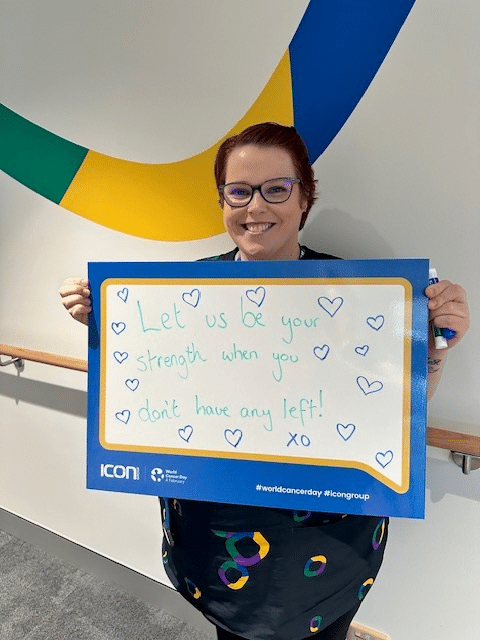 Let us be your
strength when you
don't have any left!
XO
ICON
World
Cancer Day
4 February
#worldcancerday #icongroup